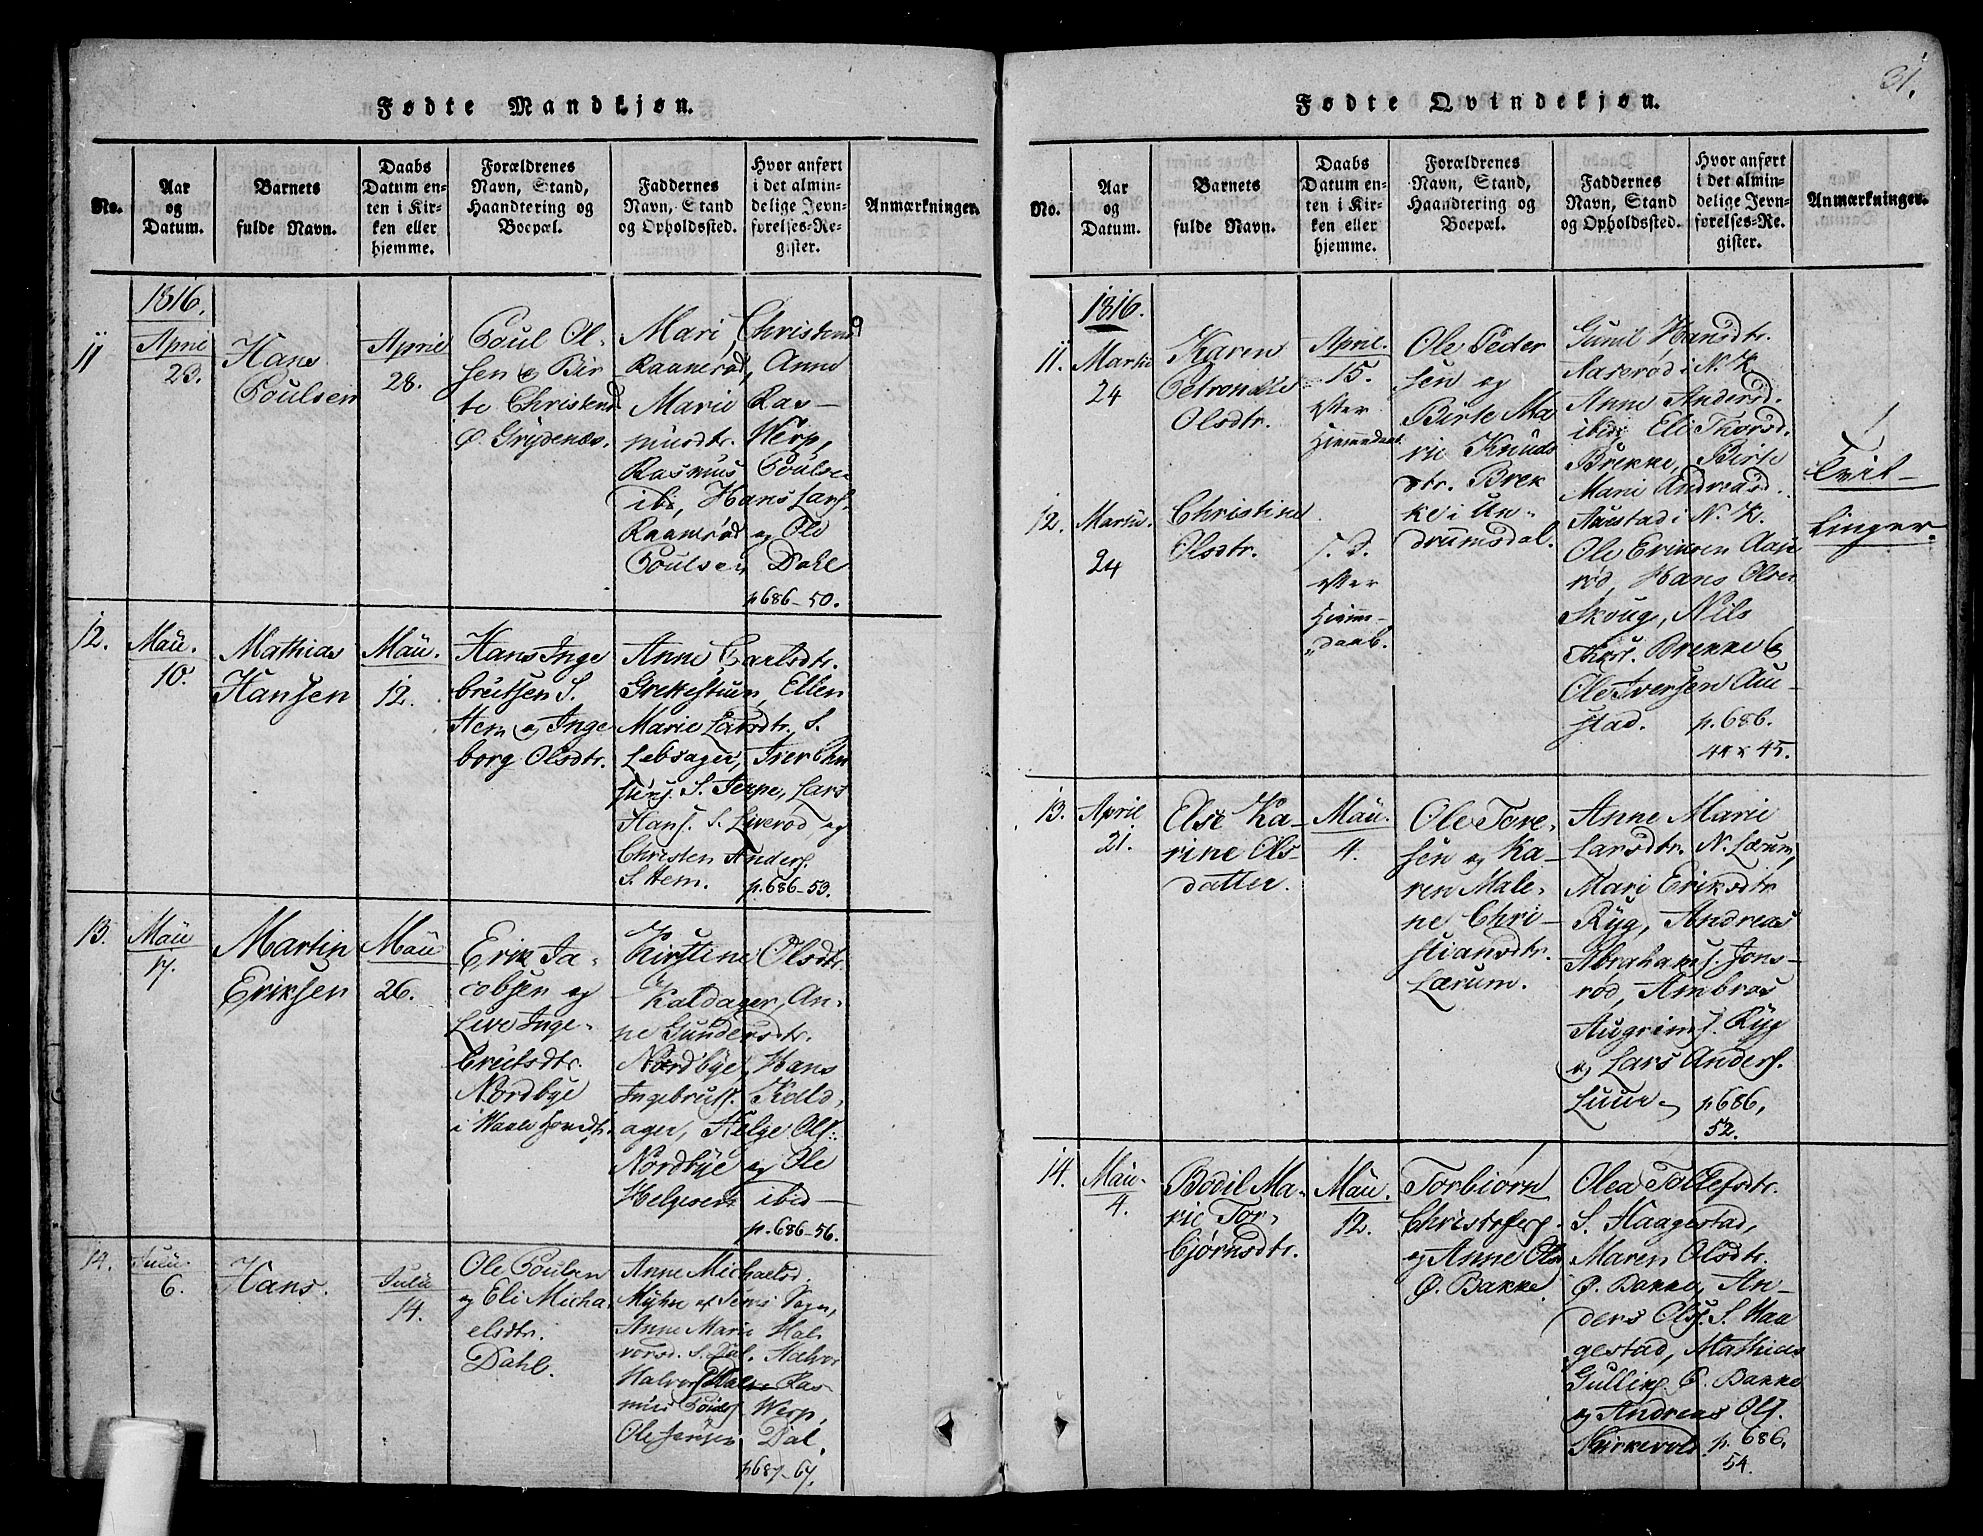 Fødte Mandkjøn.
No.
Aar
og
Datum.
Barnets
fulde Navn.
Daabs
Datum en-
ten i Kir-
ken eller
hjemme.
Forældrenes
Navn, Stand,
Haandtering og
Boepæl.
Faddernes
Navn, Stand
og Opholdssted.
Hvor anført
i det almin-
delige Jevn-
førelses-Re-
gister.
Anmærkninger.
1816.
11
April
23.
Hans
Poulsen
April
28.
Poul Ol-
sen og Bir-
te Christensd
Ø. Grydenæs.
Mari Christensd
Raanerød, Anne
Marie Ras-
musdtr. Werp,
Rasmus Poulsen
ibi, Hans Lars.
Raanerød og Ole
Poulsen Dahl
p. 686-50.
12.
Maii.
10.
Mathias
Hansen
Maii.
12.
Hans Inge
britsen S.
Hem og Inge
borg Olsdtr.
Anne Carlsdtr.
Grekestuen, Ellen
Marie Larsdtr. S.
Lebsager, Iver Chri
stens. S. Jerpe, Lars
Hans. S. Liverød, og
Christen Anders.
S. Hem.
p. 686-53.
13.
Maii
17.
Martin
Eriksen
Maii
26.
Erik Ja-
cobsen og
Live Inge-
britsdtr.
Nordbye
Kirstine Olsdtr.
Kaldager, An-
ne Gundersdtr.
Nordbye, Hans
Ingebrits. Kald-
ager, Helge Ols.
Nordbye og Ole
Helgesen ibid
p. 686-56.
14.
6.
Hans.
Julii
14.
Ole Poulsen
og Eli Micha
elsdtr.
Dahl.
Anne Michaelsd.
Myhre af Sems Sogn,
Anne Marie Hal
vorsd. S. Dal. Halvor
Halvors. Ras-
mus Pouls. Werp,
Ole Jensen Dal.
p 687-67.
31.
Fødte Qvindekjøn.
No.
Aar
og
Datum.
Barnets
fulde Navn.
Daabs
Datum en-
ten i Kir-
ken eller
hjemme.
Forældrenes
Navn, Stand,
Haandtering og
Boepæl.
Faddernes
Navn, Stand
og Opholdssted.
Hvor anført
i det almin-
delige Jevn-
førelses-Re-
gister.
Anmærkninger.
1816.
11.
Martii
24
Karen
Petronelle
Olsdtr.
April.
15.
efter
Hjemmedaab.
Ole Peder
sen og
Birte Ma
rie Knuds
dtr. Brek
ke i Un-
drumsdal.
Gunil Hansdtr.
Aaserød i N. K.
Anne Andersd.
ibid, Eli Thorsd.
Brekke, Birte
Marie Andreasd.
Auestad i N. K.
Ole Eriksen Aase
rød, Hans Olsen
Skoug, Nils
Thors. Brekke &
Ole Iversen Aue-
stad.
p. 686.
44 & 45.
Tvil-
linger.
12.
Martii.
24
Christine
Olsdtr.
s. d.
efter
Hjemme-
daab.
13.
April
21.
Else Ka-
rine Ols-
datter.
Maii.
4.
Ole Tore-
sen og Ka-
ren Male-
ne Chri-
stiansdtr.
Lærum.
Anne Marie
Larsdtr. N. Lærum,
Mari Eriksdtr
Ryg, Andreas
Abrahams. Jons-
rød, Ambros
Augrims. Ryg
og Lars Anders.
Luur
p 686,
52.
14.
Maii.
4.
Bodil Ma-
rie Tor-
bjørnsdtr.
Maii.
12.
Torbiørn
Christophers.
og Anne Ols
Ø. Bakke.
Olea Tollefsdtr.
S. Haagestad,
Maren Olsdtr.
Ø. Bakke, An-
ders Ols. S. Haa
gestad, Mathias
Gulliks. Ø. Bakke
og Andreas Ols.
Kirkevold.
p. 686.
54.